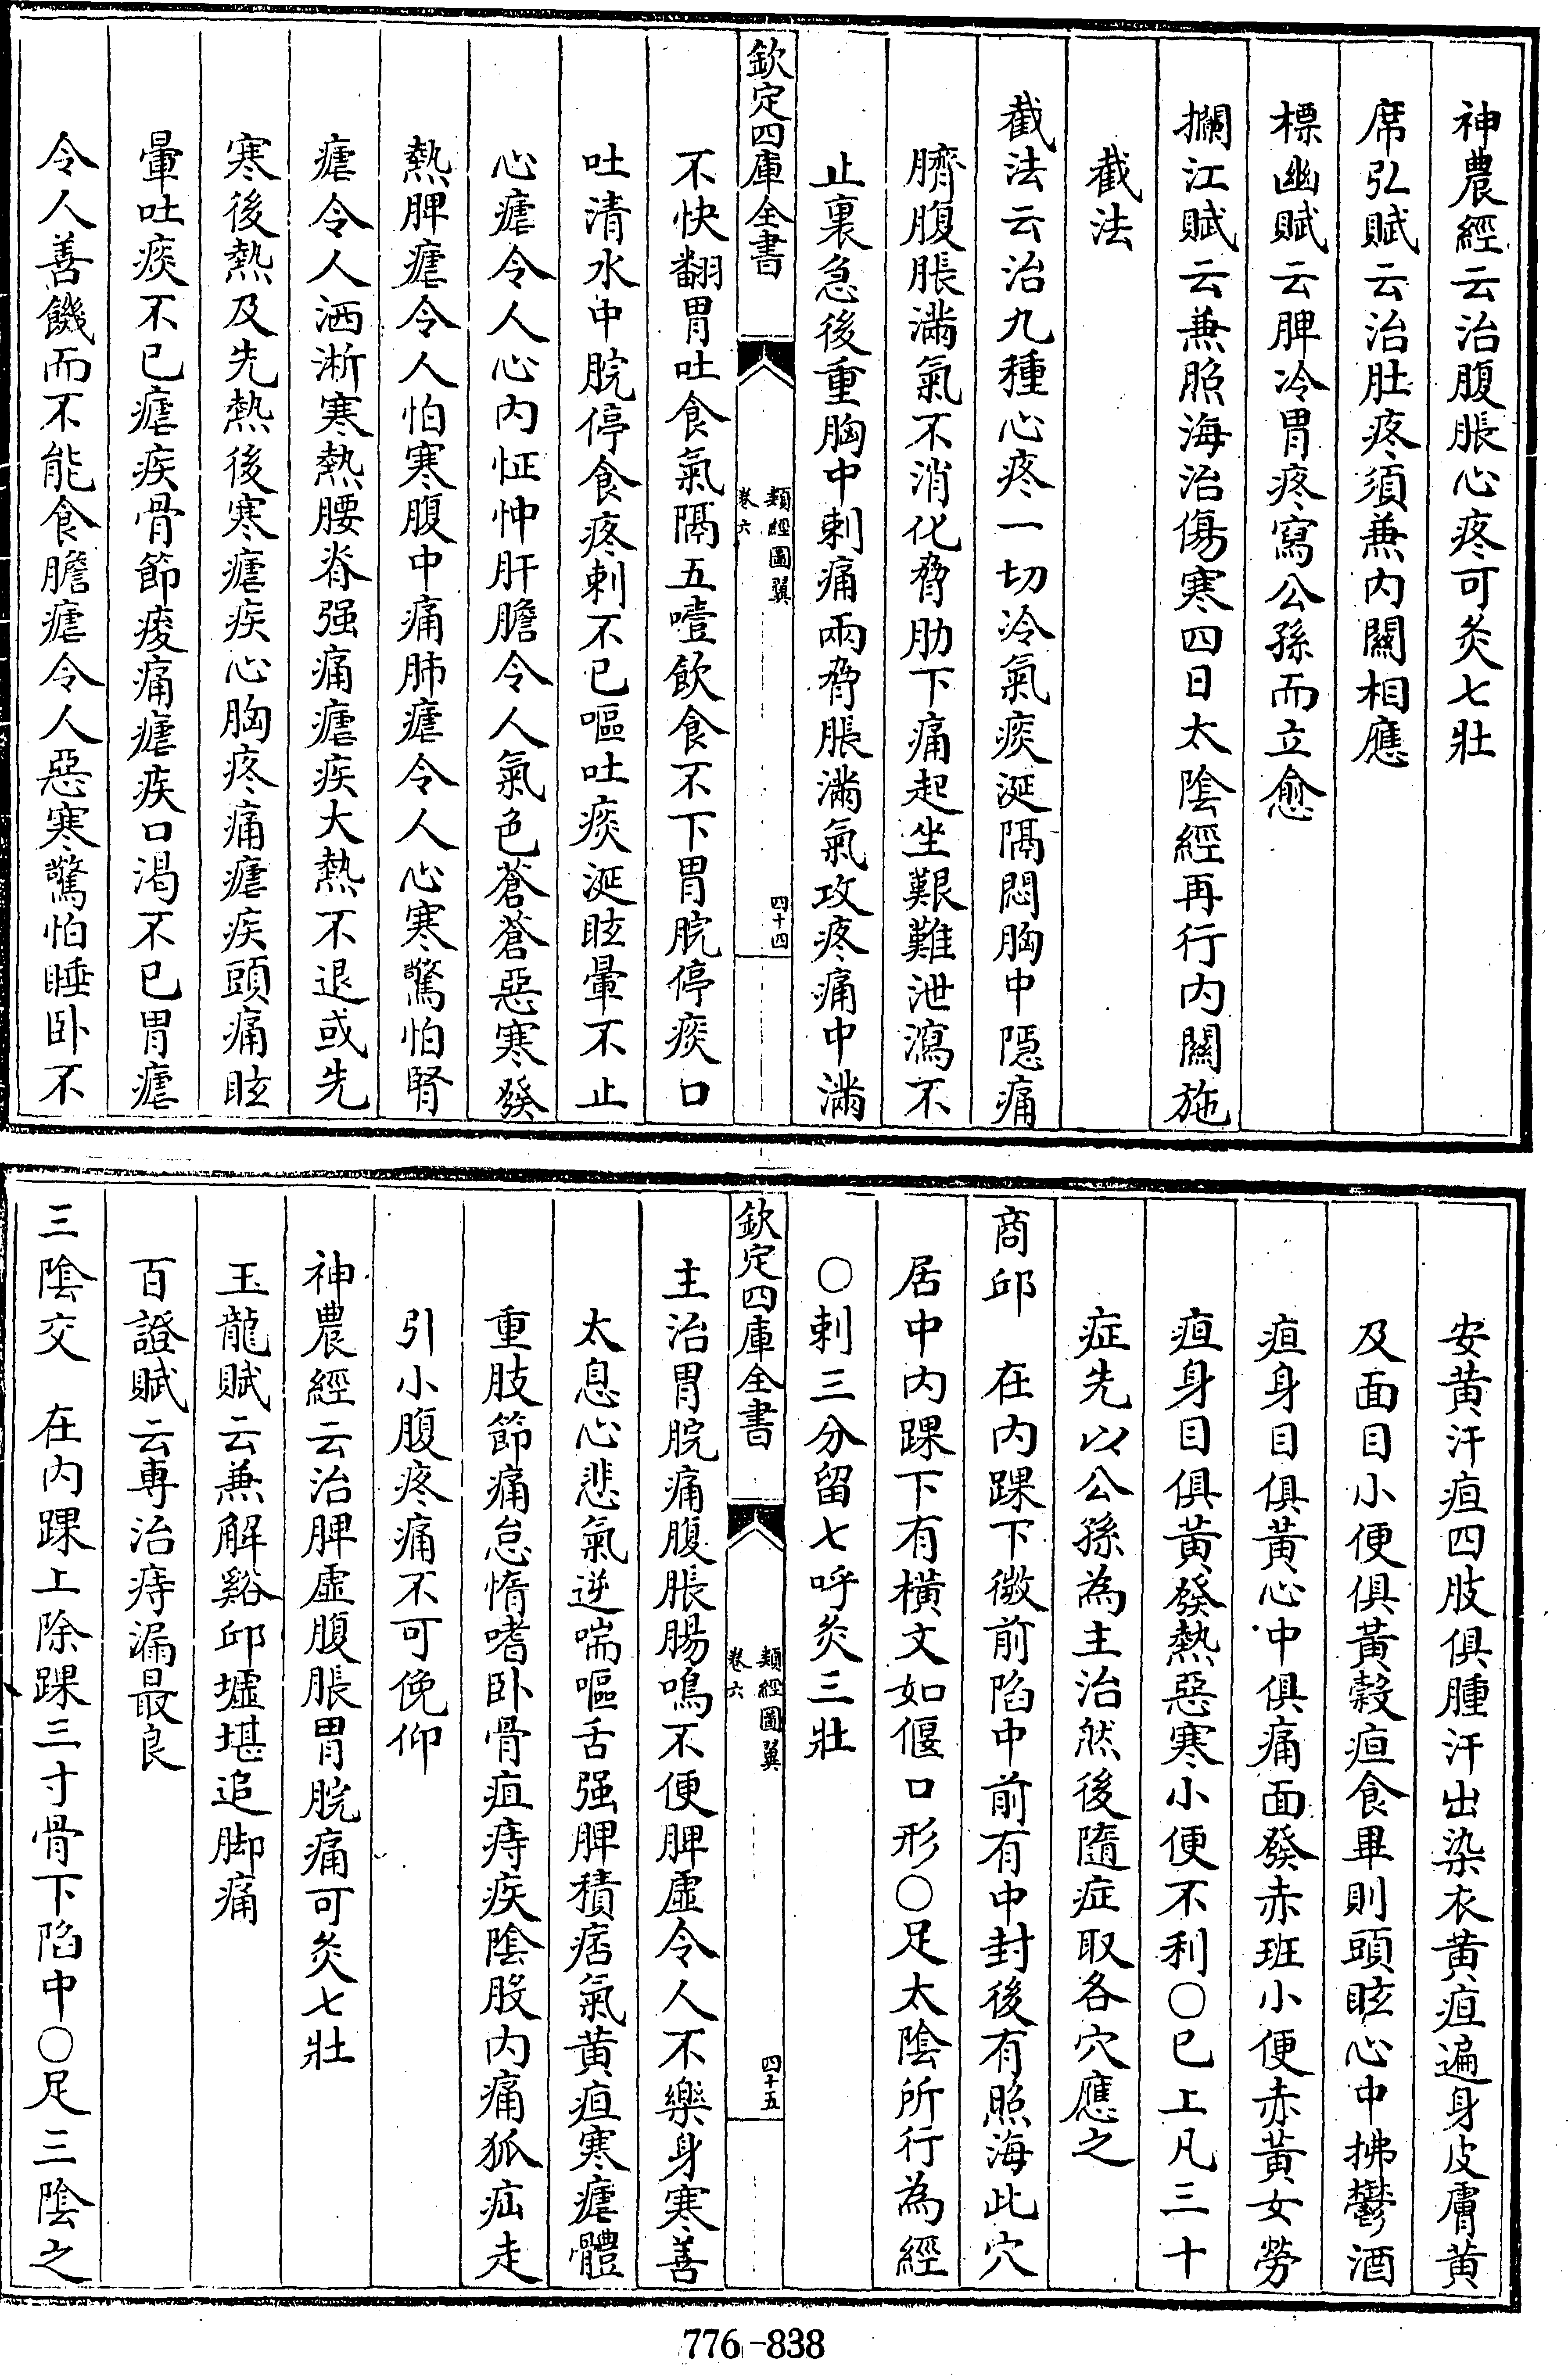 神農經云治腹脹心疼可灸七壯
席弘賦云治肚疼須兼内關相應
標幽賦云脾冷胃疼寫公孫而立愈
攔江賦云兼照海治傷寒四日太陰經再行内關施
截法
截法云治九種心疼一切冷氣痰涎隔悶胸中隱痛
臍腹脹滿氣不消化脅肋下痛起坐艱難泄瀉不
止裏急後重胸中刺痛兩脅脹滿氣攻疼痛中滿
欽定四庫全書
類經圖翼
卷六
四十四
不快翻胃吐食氣隔五噎飲食不下胃脘停痰口
吐清水中脘停食疼刺不已嘔吐痰涎眩暈不止
心瘧令人心内怔忡肝膽令人氣色蒼蒼惡寒發
熱脾瘧令人怕寒腹中痛肺瘧令人心寒驚怕腎
瘧令人洒淅寒熱腰脊强痛瘧疾大熱不退或先
寒後熱及先熱後寒瘧疾心胸疼痛瘧疾頭痛眩
暈吐痰不已瘧疾骨節痠痛瘧疾口渴不已胃瘧
令人善饑而不能食膽瘧令人惡寒驚怕睡卧不
安黄汗疸四肢俱腫汗出染衣黄疸遍身皮膚黄
及面目小便俱黄穀疸食畢則頭眩心中拂鬱酒
疸身目俱黄心中俱痛面發赤班小便赤黄女勞
疸身目俱黄發熱惡寒小便不利○已上凡三十
症先以公孫為主治然後隨症取各穴應之
商邱　在内踝下微前陷中前有中封後有照海此穴
居中内踝下有橫文如偃口形○足太陰所行為經
○刺三分留七呼灸三壯
欽定四庫全書
類經圖翼
卷六
四十五
主治胃脘痛腹脹腸鳴不便脾虛令人不樂身寒善
太息心悲氣逆喘嘔舌强脾積痞氣黄疸寒瘧體
重肢節痛怠惰嗜卧骨疽痔疾陰股内痛狐疝走
引小腹疼痛不可俛仰
神農經云治脾虛腹脹胃脘痛可灸七壯
玉龍賦云兼解谿邱墟堪追脚痛
百證賦云專治痔漏最良
三陰交　在内踝上除踝三寸骨下陷中○足三陰之
776-838